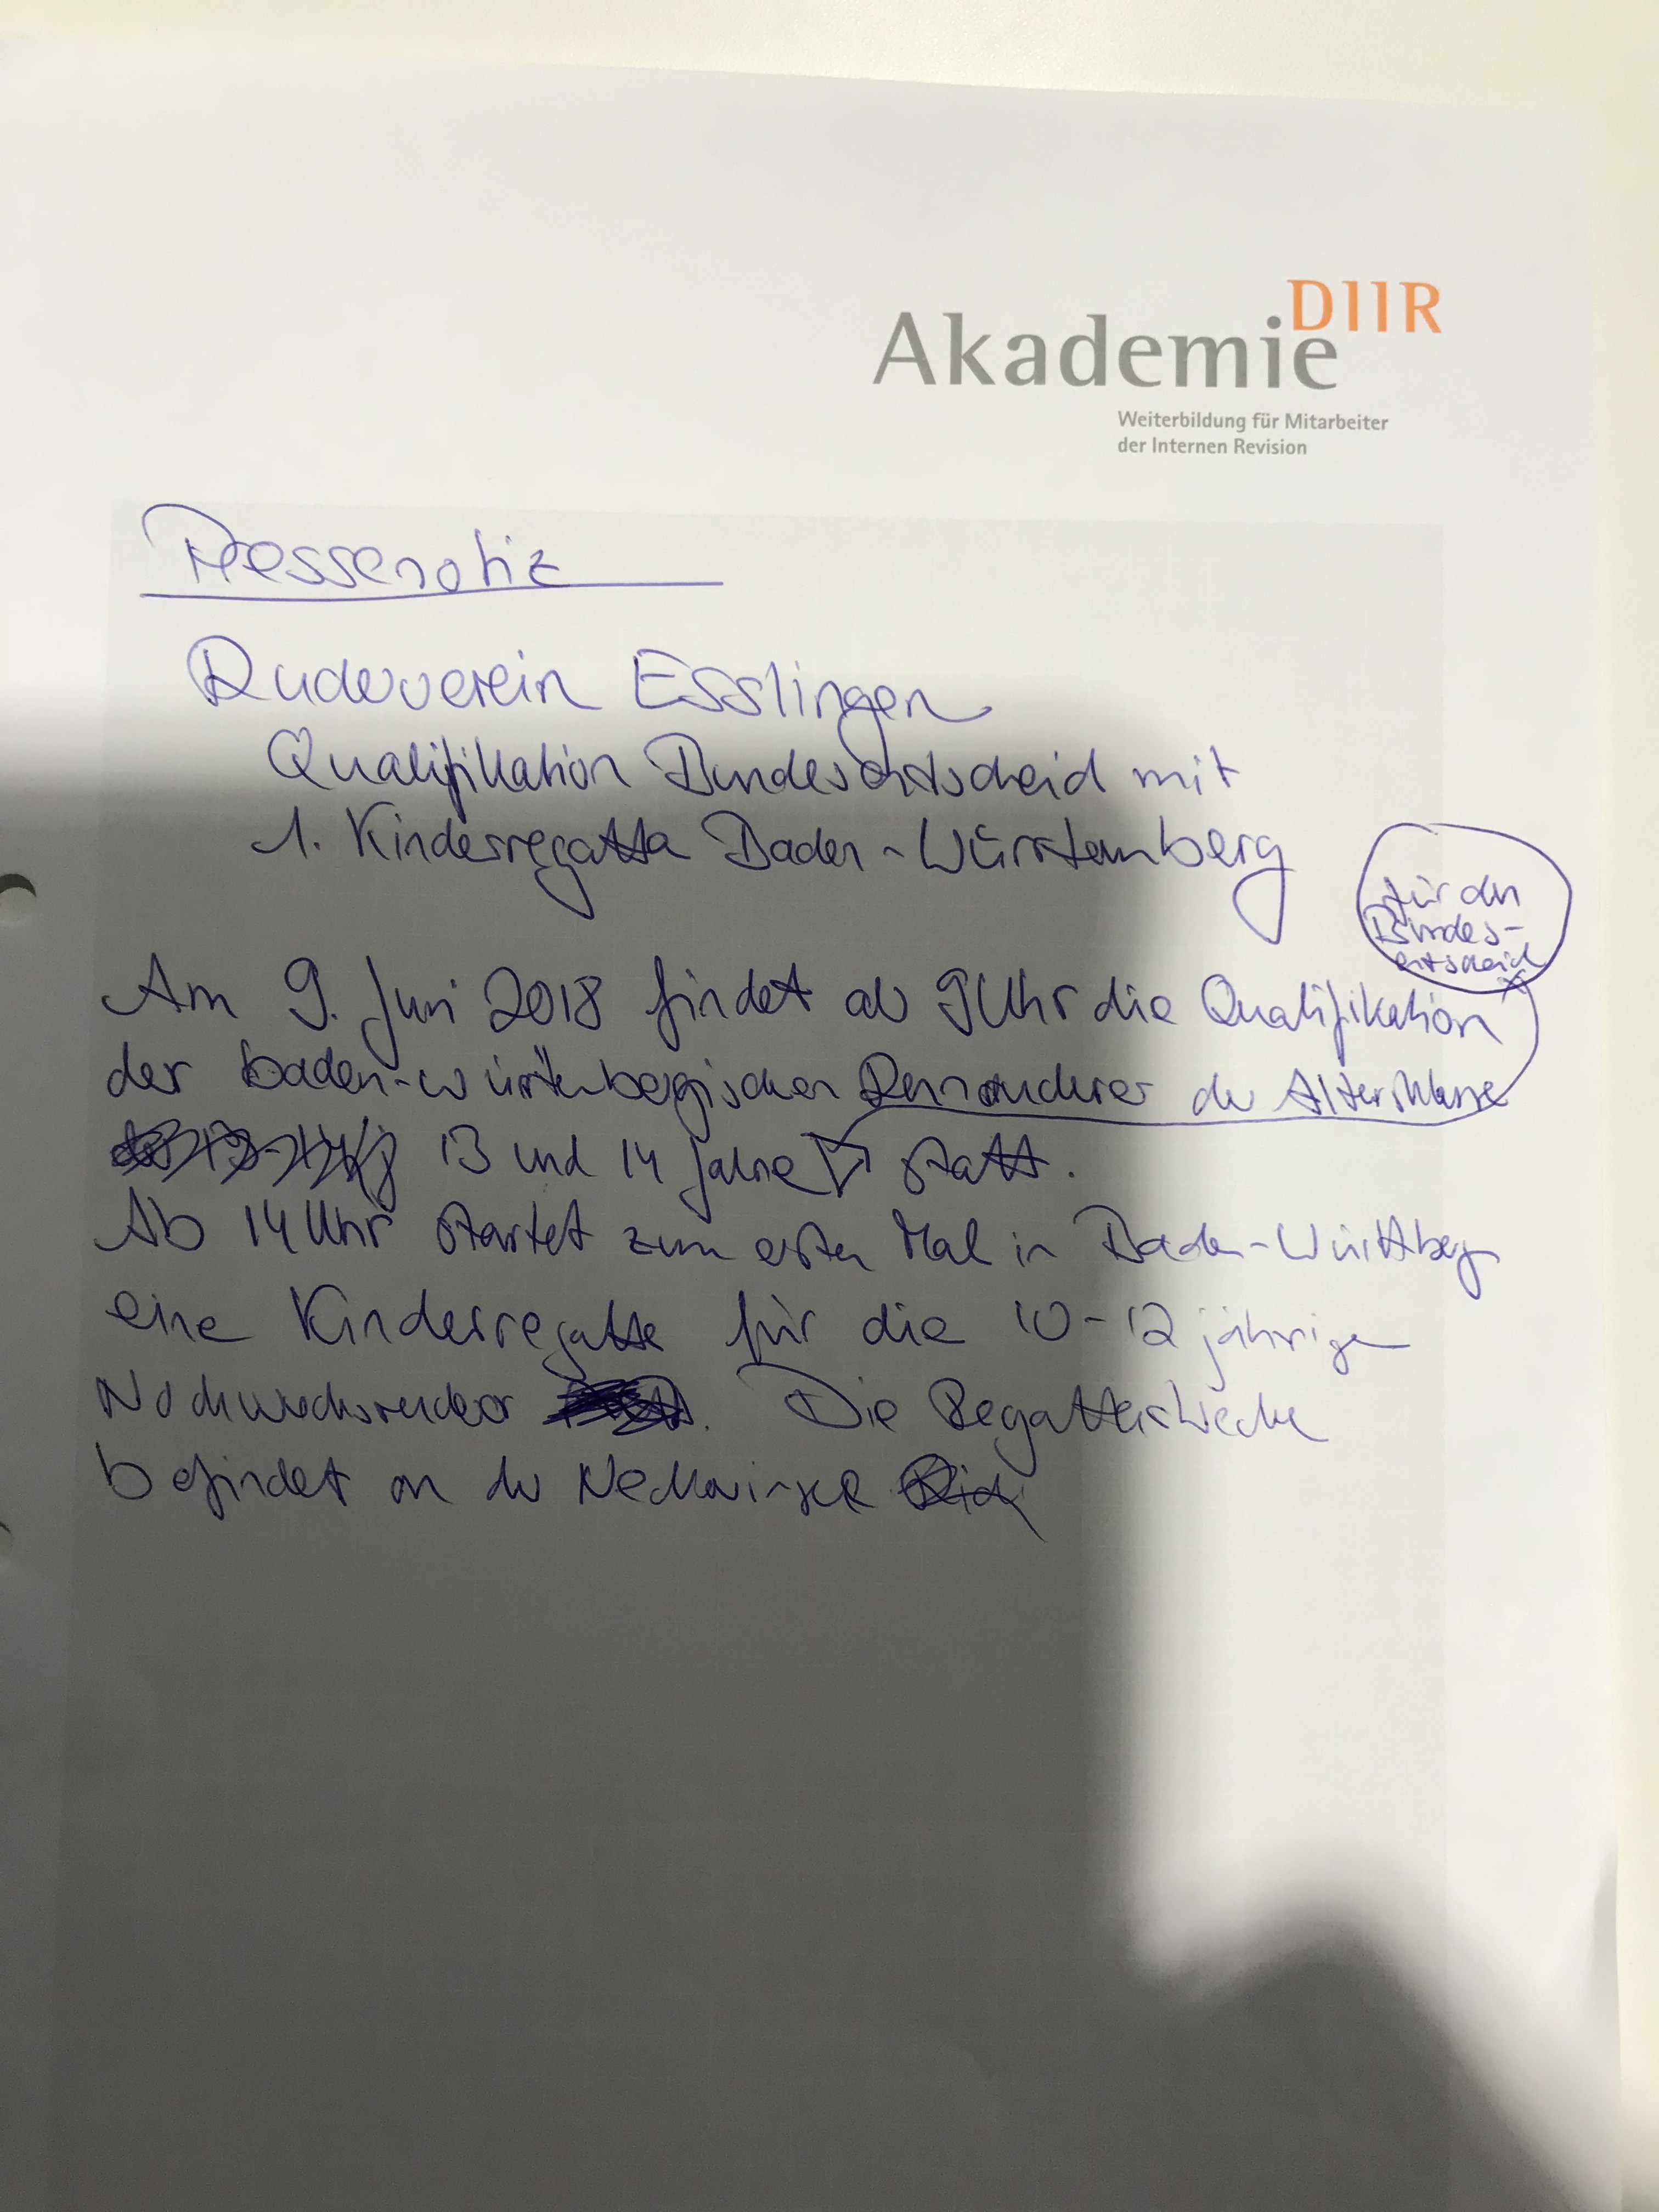 Akademie DIIR
Weiterbildung für Mitarbeiter
der Internen Revision
Pressenotiz
Ruderverein Esslingen
Qualifikation Bundesentscheid mit
1. Kinderregatta Baden-Württemberg
für den
Bundes-
entscheid
Am 9. Juni 2018 findet ab 9 Uhr die Qualifikation
der baden-württenbergischen Rennruderer der Altersklasse
13 und 14 Jahre statt.
Ab 14 Uhr startet zum ersten Mal in Baden-Württbg
eine Kinderregatta für die 10-12 jährigen
Nachwuchsruderer. Die Regattastrecke
befindet an der Neckarinsel